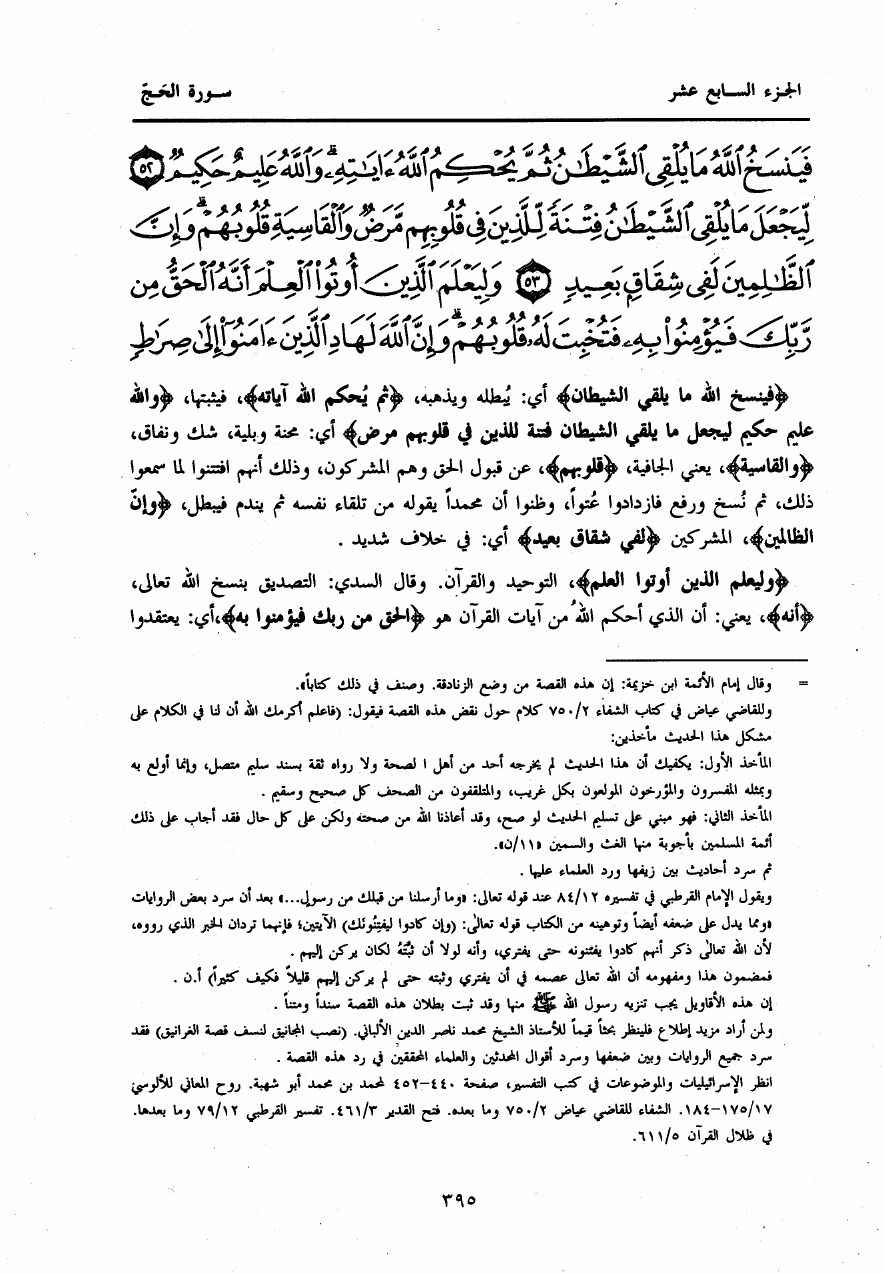 الجزء السابع عشر
سورة الحَجّ
فَيَنسَخُ ٱللَّهُ مَا يُلْقِى ٱلشَّيْطَٰنُ ثُمَّ يُحْكِمُ ٱللَّهُ ءَايَٰتِهِۦ ۗ وَٱللَّهُ عَلِيمٌ حَكِيمٌ ٥٢
لِّيَجْعَلَ مَا يُلْقِى ٱلشَّيْطَٰنُ فِتْنَةً لِّلَّذِينَ فِى قُلُوبِهِم مَّرَضٌ وَٱلْقَاسِيَةِ قُلُوبُهُمْ ۗ وَإِنَّ
ٱلظَّٰلِمِينَ لَفِى شِقَاقٍۭ بَعِيدٍ ٥٣ وَلِيَعْلَمَ ٱلَّذِينَ أُوتُوا۟ ٱلْعِلْمَ أَنَّهُ ٱلْحَقُّ مِن
رَّبِّكَ فَيُؤْمِنُوا۟ بِهِۦ فَتُخْبِتَ لَهُۥ قُلُوبُهُمْ ۗ وَإِنَّ ٱللَّهَ لَهَادِ ٱلَّذِينَ ءَامَنُوٓا۟ إِلَىٰ صِرَٰطٍ
﴿فينسخ الله ما يلقي الشيطان﴾ أي: يُبطله ويذهبه، ﴿ثم يُحكم الله آياته﴾، فيثبتها، ﴿والله
عليم حكيم ليجعل ما يلقي الشيطان فتنة للذين في قلوبهم مرض﴾ أي: محنة وبلية، شك ونفاق،
﴿والقاسية﴾، يعني الجافية، ﴿قلوبهم﴾، عن قبول الحق وهم المشركون، وذلك أنهم افتتنوا لما سمعوا
ذلك، ثم نُسخ ورفع فازدادوا عُتواً، وظنوا أن محمداً يقوله من تلقاء نفسه ثم يندم فيبطل، ﴿وإنّ
الظالمين﴾، المشركين ﴿لفي شقاق بعيد﴾ أي: في خلاف شديد .
﴿وليعلم الذين أوتوا العلم﴾، التوحيد والقرآن. وقال السدي: التصديق بنسخ الله تعالى،
﴿أنه﴾، يعني: أن الذي أحكم الله من آيات القرآن هو ﴿الحق من ربك فيؤمنوا به﴾،أي: يعتقدوا
= وقال إمام الأئمة ابن خزيمة: إن هذه القصة من وضع الزنادقة. وصنف في ذلك كتاباً».
وللقاضي عياض في كتاب الشفاء ٧٥٠/٢ كلام حول نقض هذه القصة فيقول: (فاعلم أكرمك الله أن لنا في الكلام على
مشكل هذا الحديث مأخذين:
المأخذ الأول: يكفيك أن هذا الحديث لم يخرجه أحد من أهل ا لصحة ولا رواه ثقة بسند سليم متصل، وإنما أولع به
وبمثله المفسرون والمؤرخون المولعون بكل غريب، والمتلقفون من الصحف كل صحيح وسقيم .
المأخذ الثاني: فهو مبني على تسليم الحديث لو صح، وقد أعاذنا الله من صحته ولكن على كل حال فقد أجاب على ذلك
أئمة المسلمين بأجوبة منها الغث والسمين «١١/ن».
ثم سرد أحاديث بين زيفها ورد العلماء عليها .
ويقول الإمام القرطبي في تفسيره ٨٤/١٢ عند قوله تعالى: «وما أرسلنا من قبلك من رسول...» بعد أن سرد بعض الروايات
«ومما يدل على ضعفه أيضاً وتوهينه من الكتاب قوله تعالى: (وإن كادوا ليفتِنُونَك) الآيتين؛ فإنهما تردان الخبر الذي رووه،
لأن الله تعالى ذكر أنهم كادوا يفتنونه حتى يفتري، وأنه لولا أن ثبَّتَهُ لكان يركن إليهم .
فمضمون هذا ومفهومه أن الله تعالى عصمه في أن يفتري وثبته حتى لم يركن إليهم قليلاً فكيف كثيراً) أ.ن .
إن هذه الأقاويل يجب تنزيه رسول الله ﷺ منها وقد ثبت بطلان هذه القصة سنداً ومتناً .
ولمن أراد مزيد إطلاع فلينظر بحثاً قيماً للأستاذ الشيخ محمد ناصر الدين الألباني. (نصب المجانيق لنسف قصة الغرانيق) فقد
سرد جميع الروايات وبين ضعفها وسرد أقوال المحدثين والعلماء المحققين في رد هذه القصة .
انظر الإسرائيليات والموضوعات في كتب التفسير، صفحة ٤٤٠-٤٥٢ لمحمد بن محمد أبو شهبة. روح المعاني للألوسي
١٧٥/١٧-١٨٤. الشفاء للقاضي عياض ٧٥٠/٢ وما بعده. فتح القدير ٤٦١/٣. تفسير القرطبي ٧٩/١٢ وما بعدها.
في ظلال القرآن ٦١١/٥.
٣٩٥